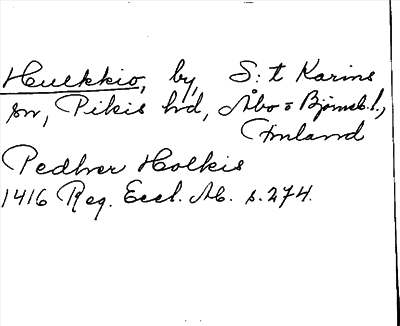 Hulkkio, by, S:t Karins
sn, Pikis hd, Åbo o Björneb.l.,
Finland
Pedher Holkis
1416 Reg. Eccl. Ab. s. 274.